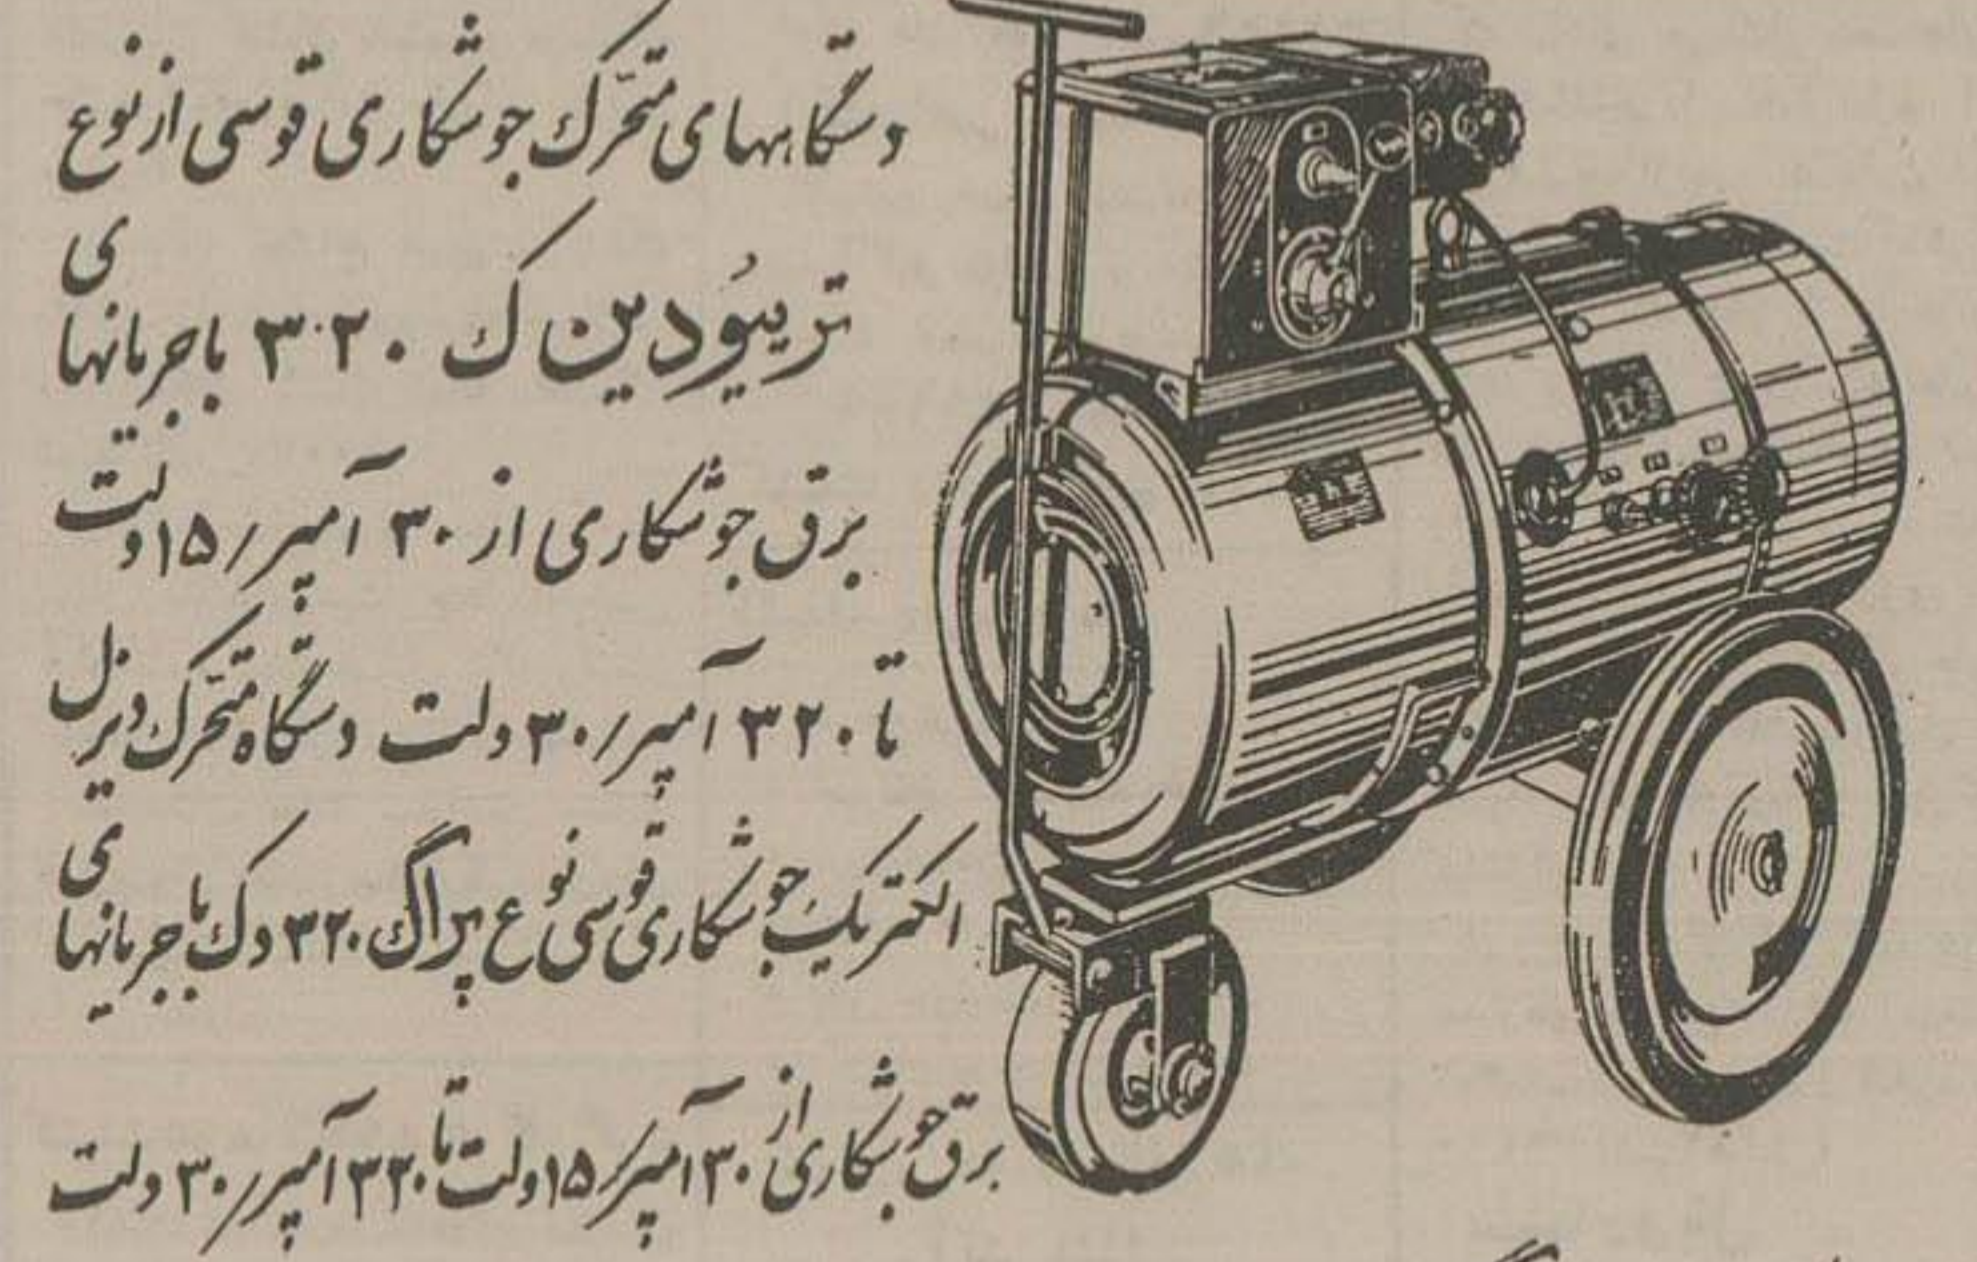 دستگاههای متحرّک جوشکاری قوسی از نوع
تریبودین ک ۳۰۲۰ با جریانهای
برق جوشکاری از ۳۰ آمپر/۱۵ ولت
تا ۳۲۰ آمپر/۳۰ ولت دستگاه متحرّک دیزل
الکتریک جوشکاری قوسی نوع پراگ ۳۲۰ دک با جریانهای
برق جوشکاری از ۳۰ آمپر/۱۵ ولت تا ۳۲۰ آمپر/۳۰ ولت